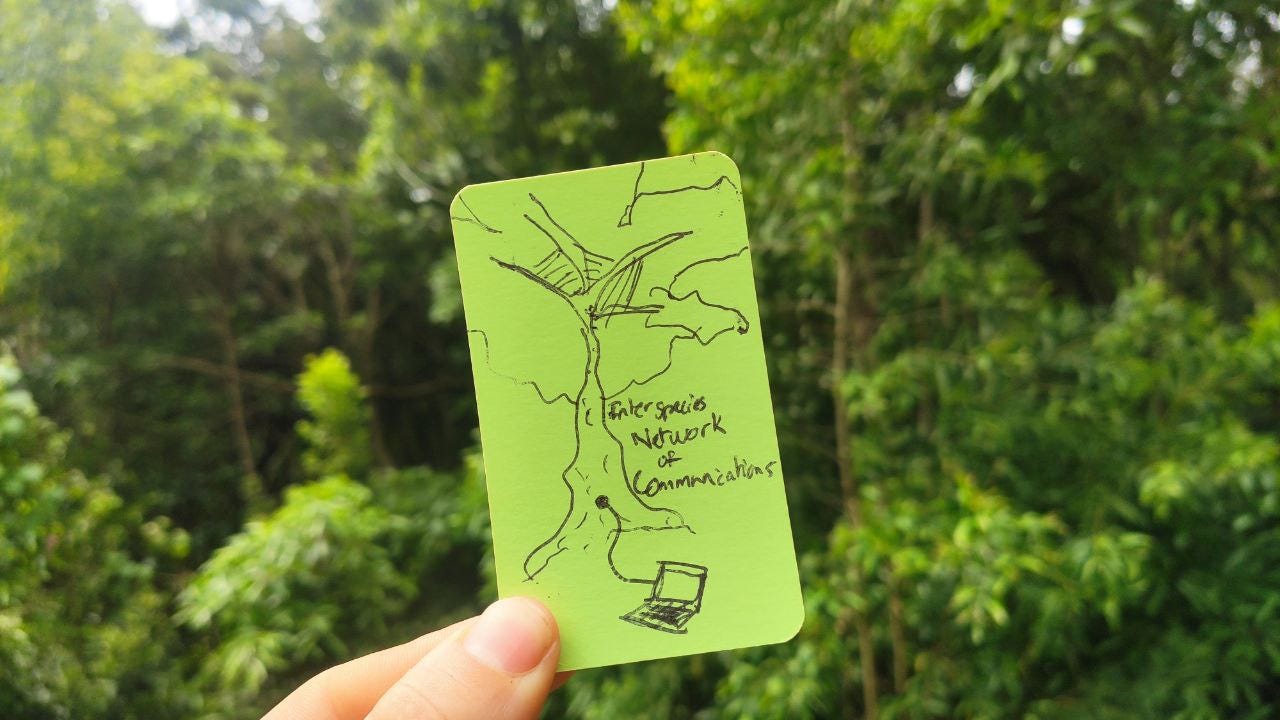 Interspecies
Network
of
Communications